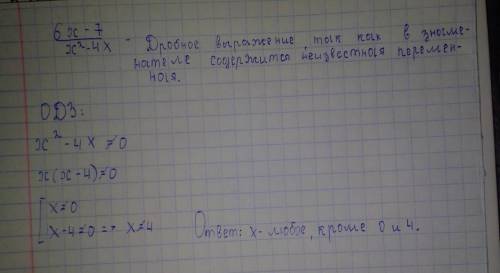 6x - 7
x² - 4x - Дробное выражение, так как в знаме-
нателе содержится неизвестная перемен-
ная.
ОДЗ:
x² - 4x ≠ 0
x(x - 4) ≠ 0
[x ≠ 0
[x - 4 ≠ 0 => x ≠ 4
Ответ: x - любое, кроме 0 и 4.